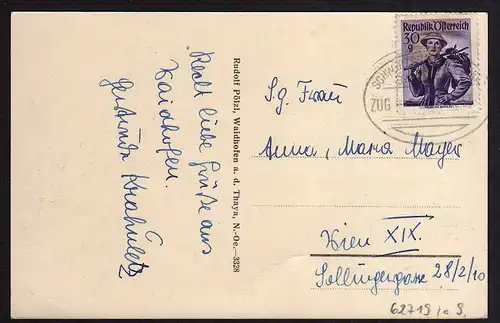 Recht liebe Grüße aus
Waidhofen.
Gertrude
Rudolf Pölzl, Waidhofen a. d. Thaya, N.-Oe.—3328
Republik Österreich
30
g
SCHW
ZUG
S.g. Frau
Anna, Maria Mayer
Wien XIX.
Sollingergasse 28/2/10